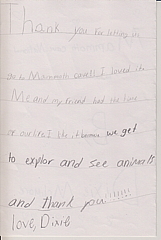 Thank you for letting us
go to Mammoth cave!! I loved it.
Me and my friend had the time
of our life I like it because we get
to explor and see animals
and thank you!!!!!!
love, Dixie